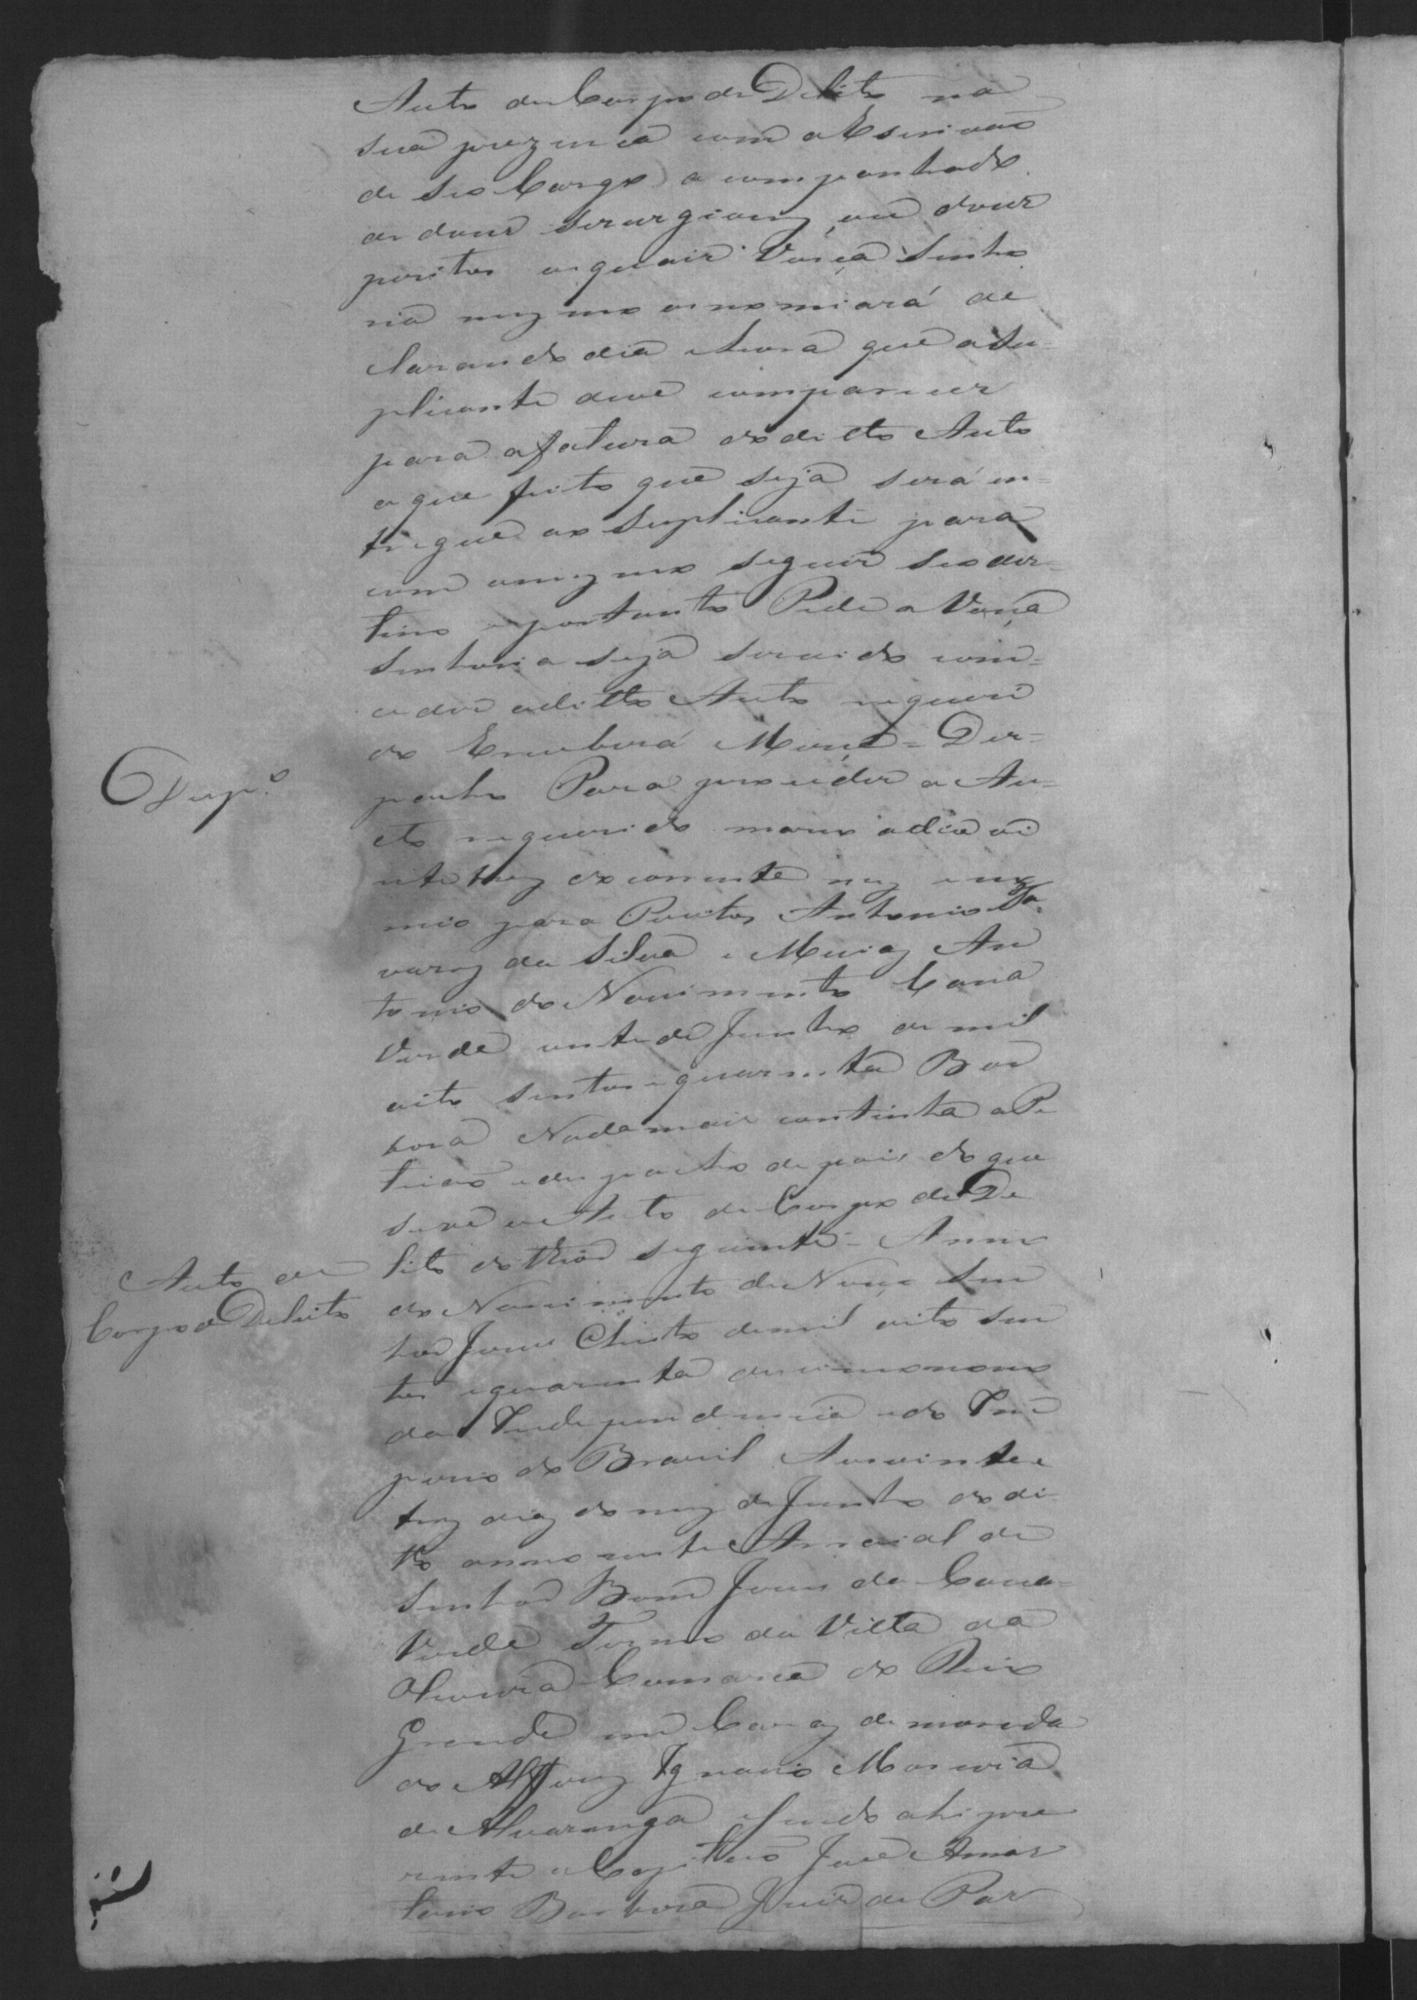 Auto de Corpo de Delito na
sua prezencia com o Escrivaõ
de seo Cargo acompanhado
de dous serurgioens, ou dous
peritos os quais Vossa Senho
ria mezmo os nomiará de
clarando dia e hora que o Su-
plicante deve comparecer
para a fatura do ditto Auto
o que feito que seja será en-
tregue ao Suplicante para
com o mezmo seguir seo des-
tino e portanto Pede a Vossa
Senhoria seja servido com-
ceder o ditto Auto requeri
do E receberá Mercê = Des-
pacho Para proceder o Au-
to requerido marco o dia vi
nte trez do corrente mez e no
meio para Peritos Antonio Ta
varez da Silva e Messias An
tonio do Nascimento Canna
Verde vinte de Junho de mil
oito sentos e quarenta Bar
boza Nada mais continha a Pe
ticaõ e despacho depois do que
se ve o Auto de Corpo de De
lito do theor seguinte = Anno
do Nascimento de Nosso Sen
hor Jesus Christo de mil oito sen
tos e quarenta decimo nono
da Independencia e do Im
perio do Brasil Aos vinte e
trez diaz do mez de Junho do di
to anno neste Arraial do
Senhor Bom Jesus da Canna
Verde Termo da Villa da
Oliveira Comarca do Rio
Grande em Cazaz de morada
do Alferez Ignacio Moreira
de Alvarenga e sendo ahi pre
zente o Capitaõ José Amar
Barboza Juiz de Paz
Desp.º
Auto de
Corpo de Delito